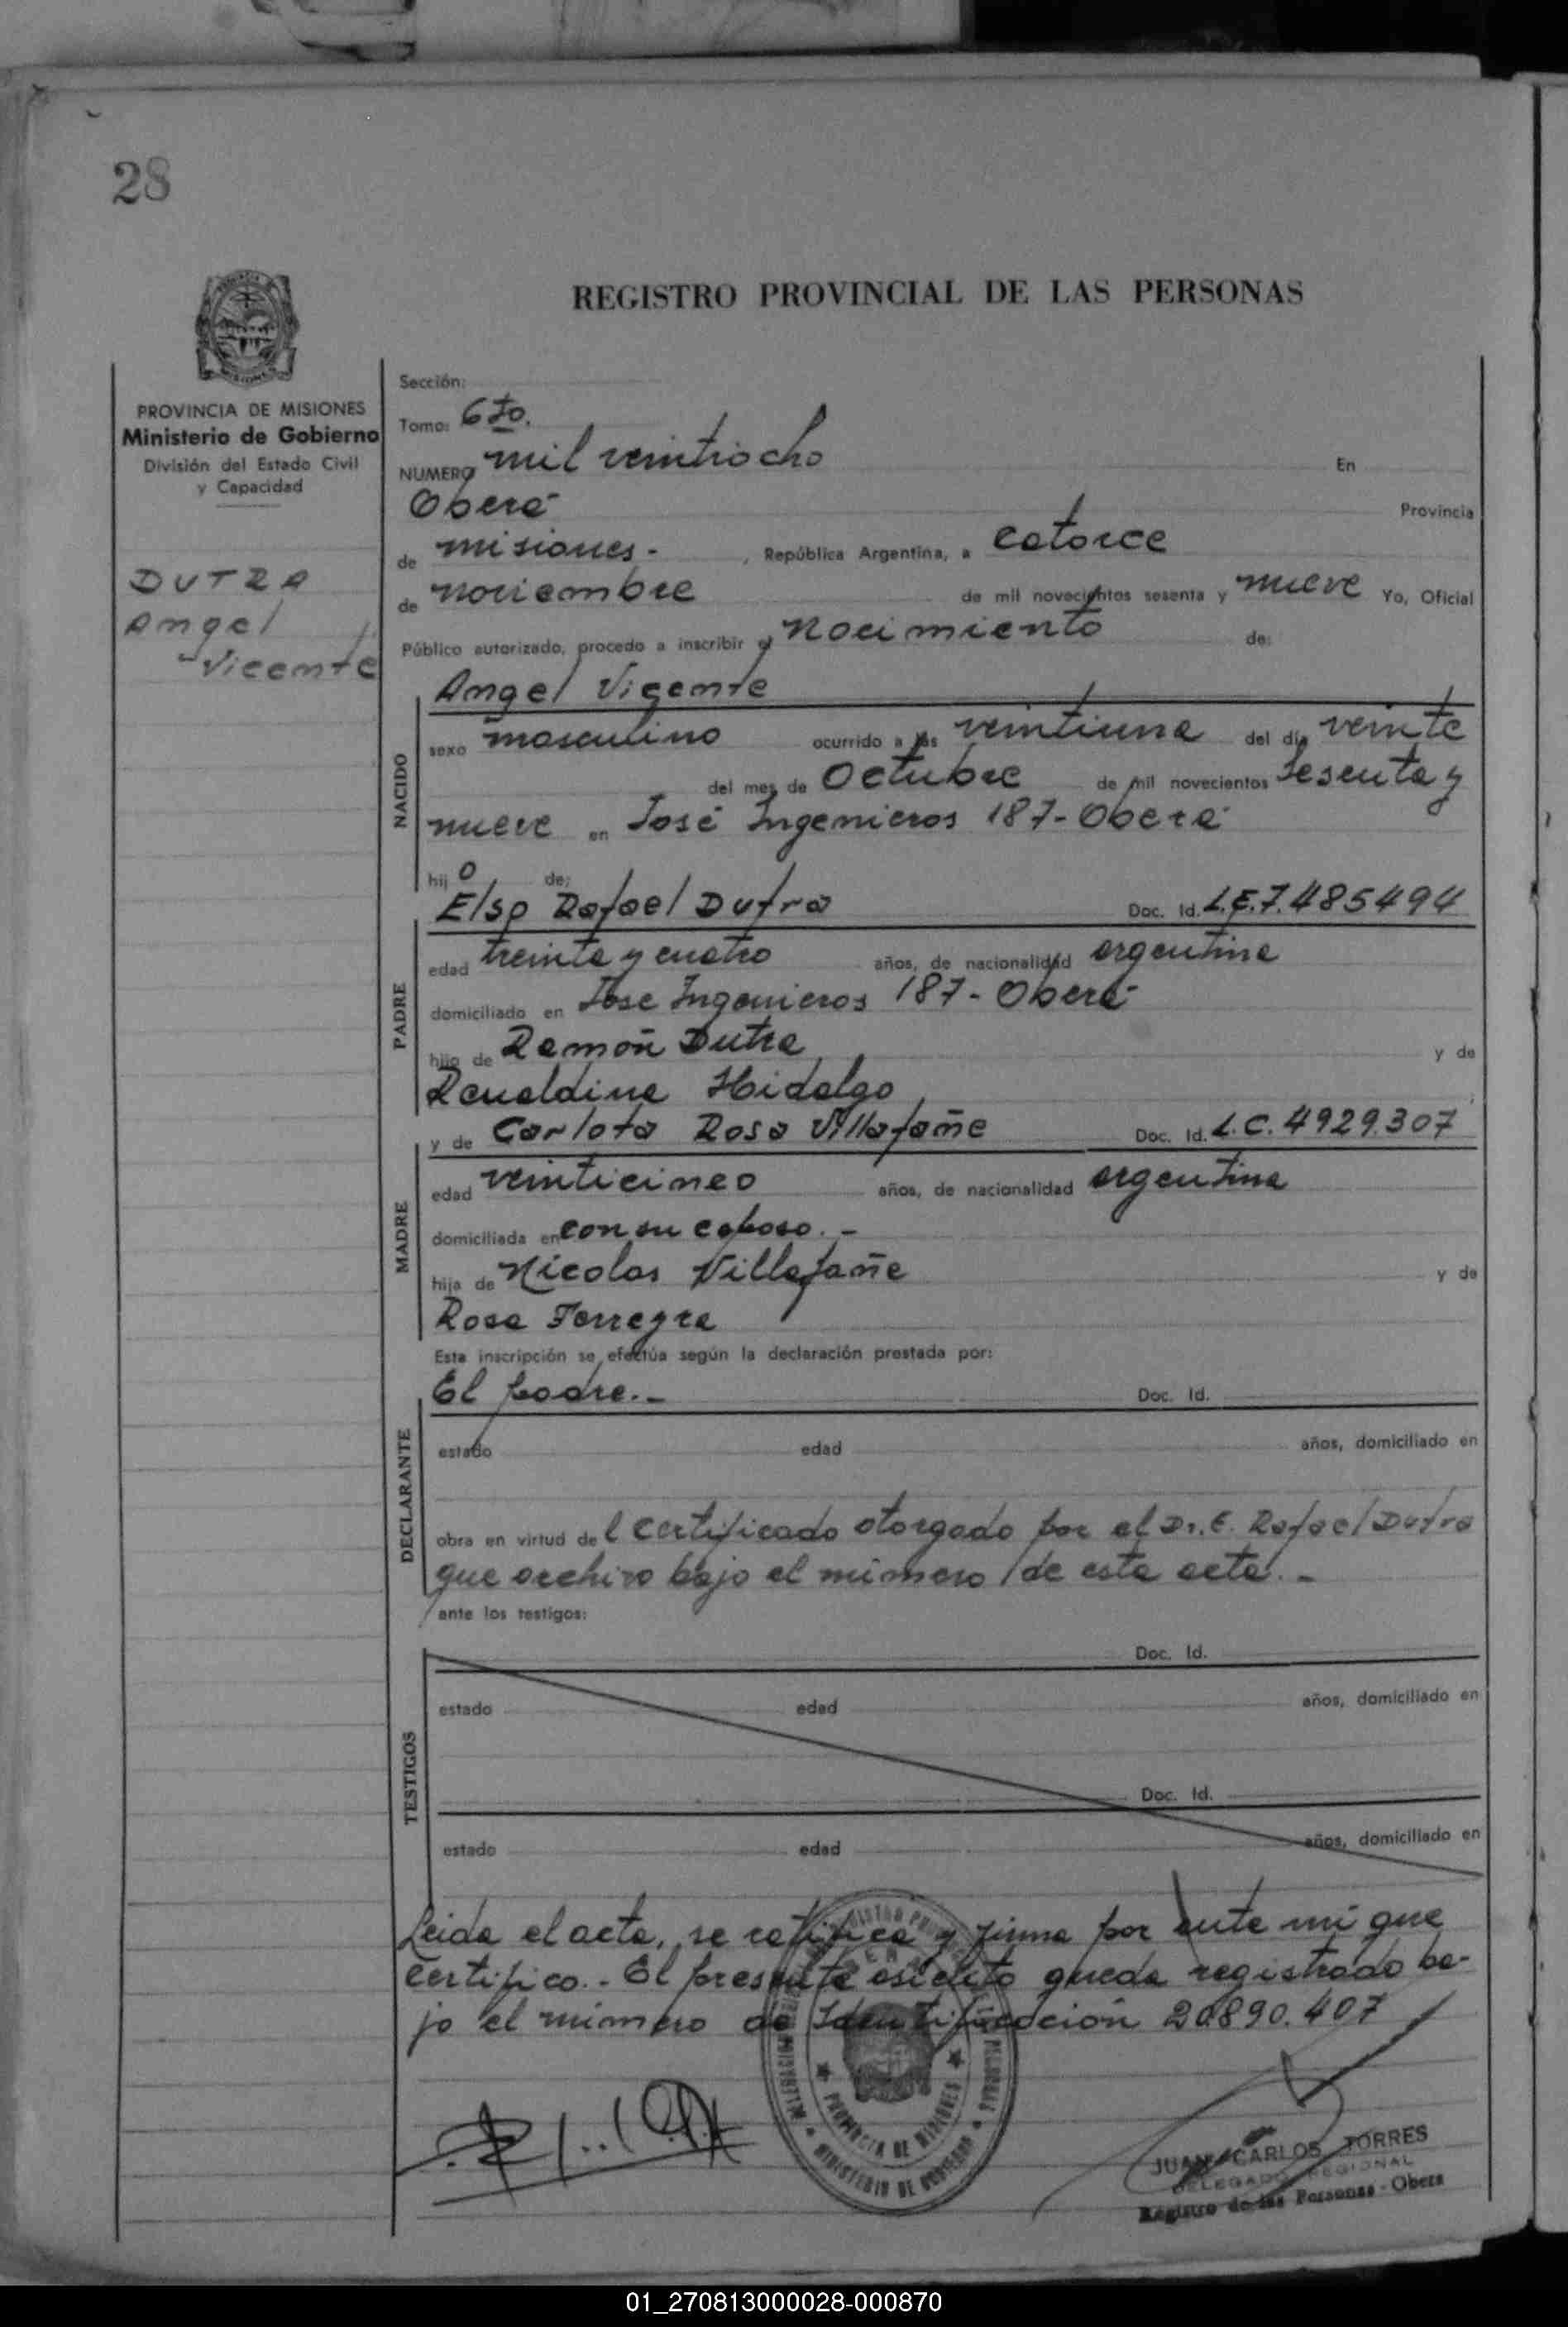 28
REGISTRO PROVINCIAL DE LAS PERSONAS
PROVINCIA DE MISIONES
Ministerio de Gobierno
División del Estado Civil
y Capacidad
DUTRA
Angel
Vicente
Sección:
Tomo: 6to.
NUMERO mil veintiocho En
Oberá Provincia
de misiones - , República Argentina, a catorce
de noviembre de mil novecientos sesenta y nueve Yo, Oficial
Público autorizado, procedo a inscribir el Nacimiento de:
Angel Vicente
NACIDO
sexo masculino ocurrido a las veintiuna del día veinte
del mes de Octubre de mil novecientos sesenta y
nueve en José Ingenieros 187 - Oberá
hijo de:
Elso Rafael Dutra Doc. Id. L.E.7.485494
PADRE
edad treinta y cuatro años, de nacionalidad argentina
domiciliado en José Ingenieros 187 - Oberá
hijo de Ramón Dutra y de
Hidalgo
MADRE
y de Carlota Rosa Villafañe Doc. Id. L.C. 4929.307
edad veinticinco años, de nacionalidad argentina
domiciliada en con su esposo. -
hija de Nicolas Villafañe y de
Rosa Ferreyra
Esta inscripción se efectúa según la declaración prestada por:
El padre. - Doc. Id.
DECLARANTE
estado edad años, domiciliado en
obra en virtud del certificado otorgado por el Dr. E. Rafael Dutra
que archivo bajo el número de esta acta. -
ante los testigos:
TESTIGOS
Doc. Id.
estado edad años, domiciliado en
Doc. Id.
estado edad años, domiciliado en
Leida el acta, se ratifica y firma por ante mí que
certifico. - El presente inscripto queda registrado ba-
jo el número de Identificación 20890.407
PROVINCIA DE MISIONES
MINISTERIO DE GOBIERNO
JUAN CARLOS TORRES
DELEGADO REGIONAL
Registro de las Personas - Obera
01_270813000028-000870